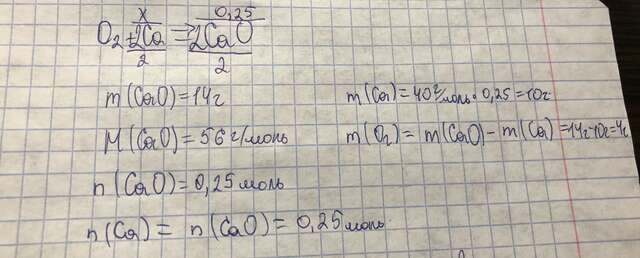 x 0,25
O₂ + 2Ca = 2CaO
2 2
m(CaO) = 14г
M(CaO) = 56 г/моль
n(CaO) = 0,25 моль
n(Ca) = n(CaO) = 0,25 моль
m(Ca) = 40 г/моль · 0,25 = 10г
m(O₂) = m(CaO) - m(Ca) = 14г-10г=4г